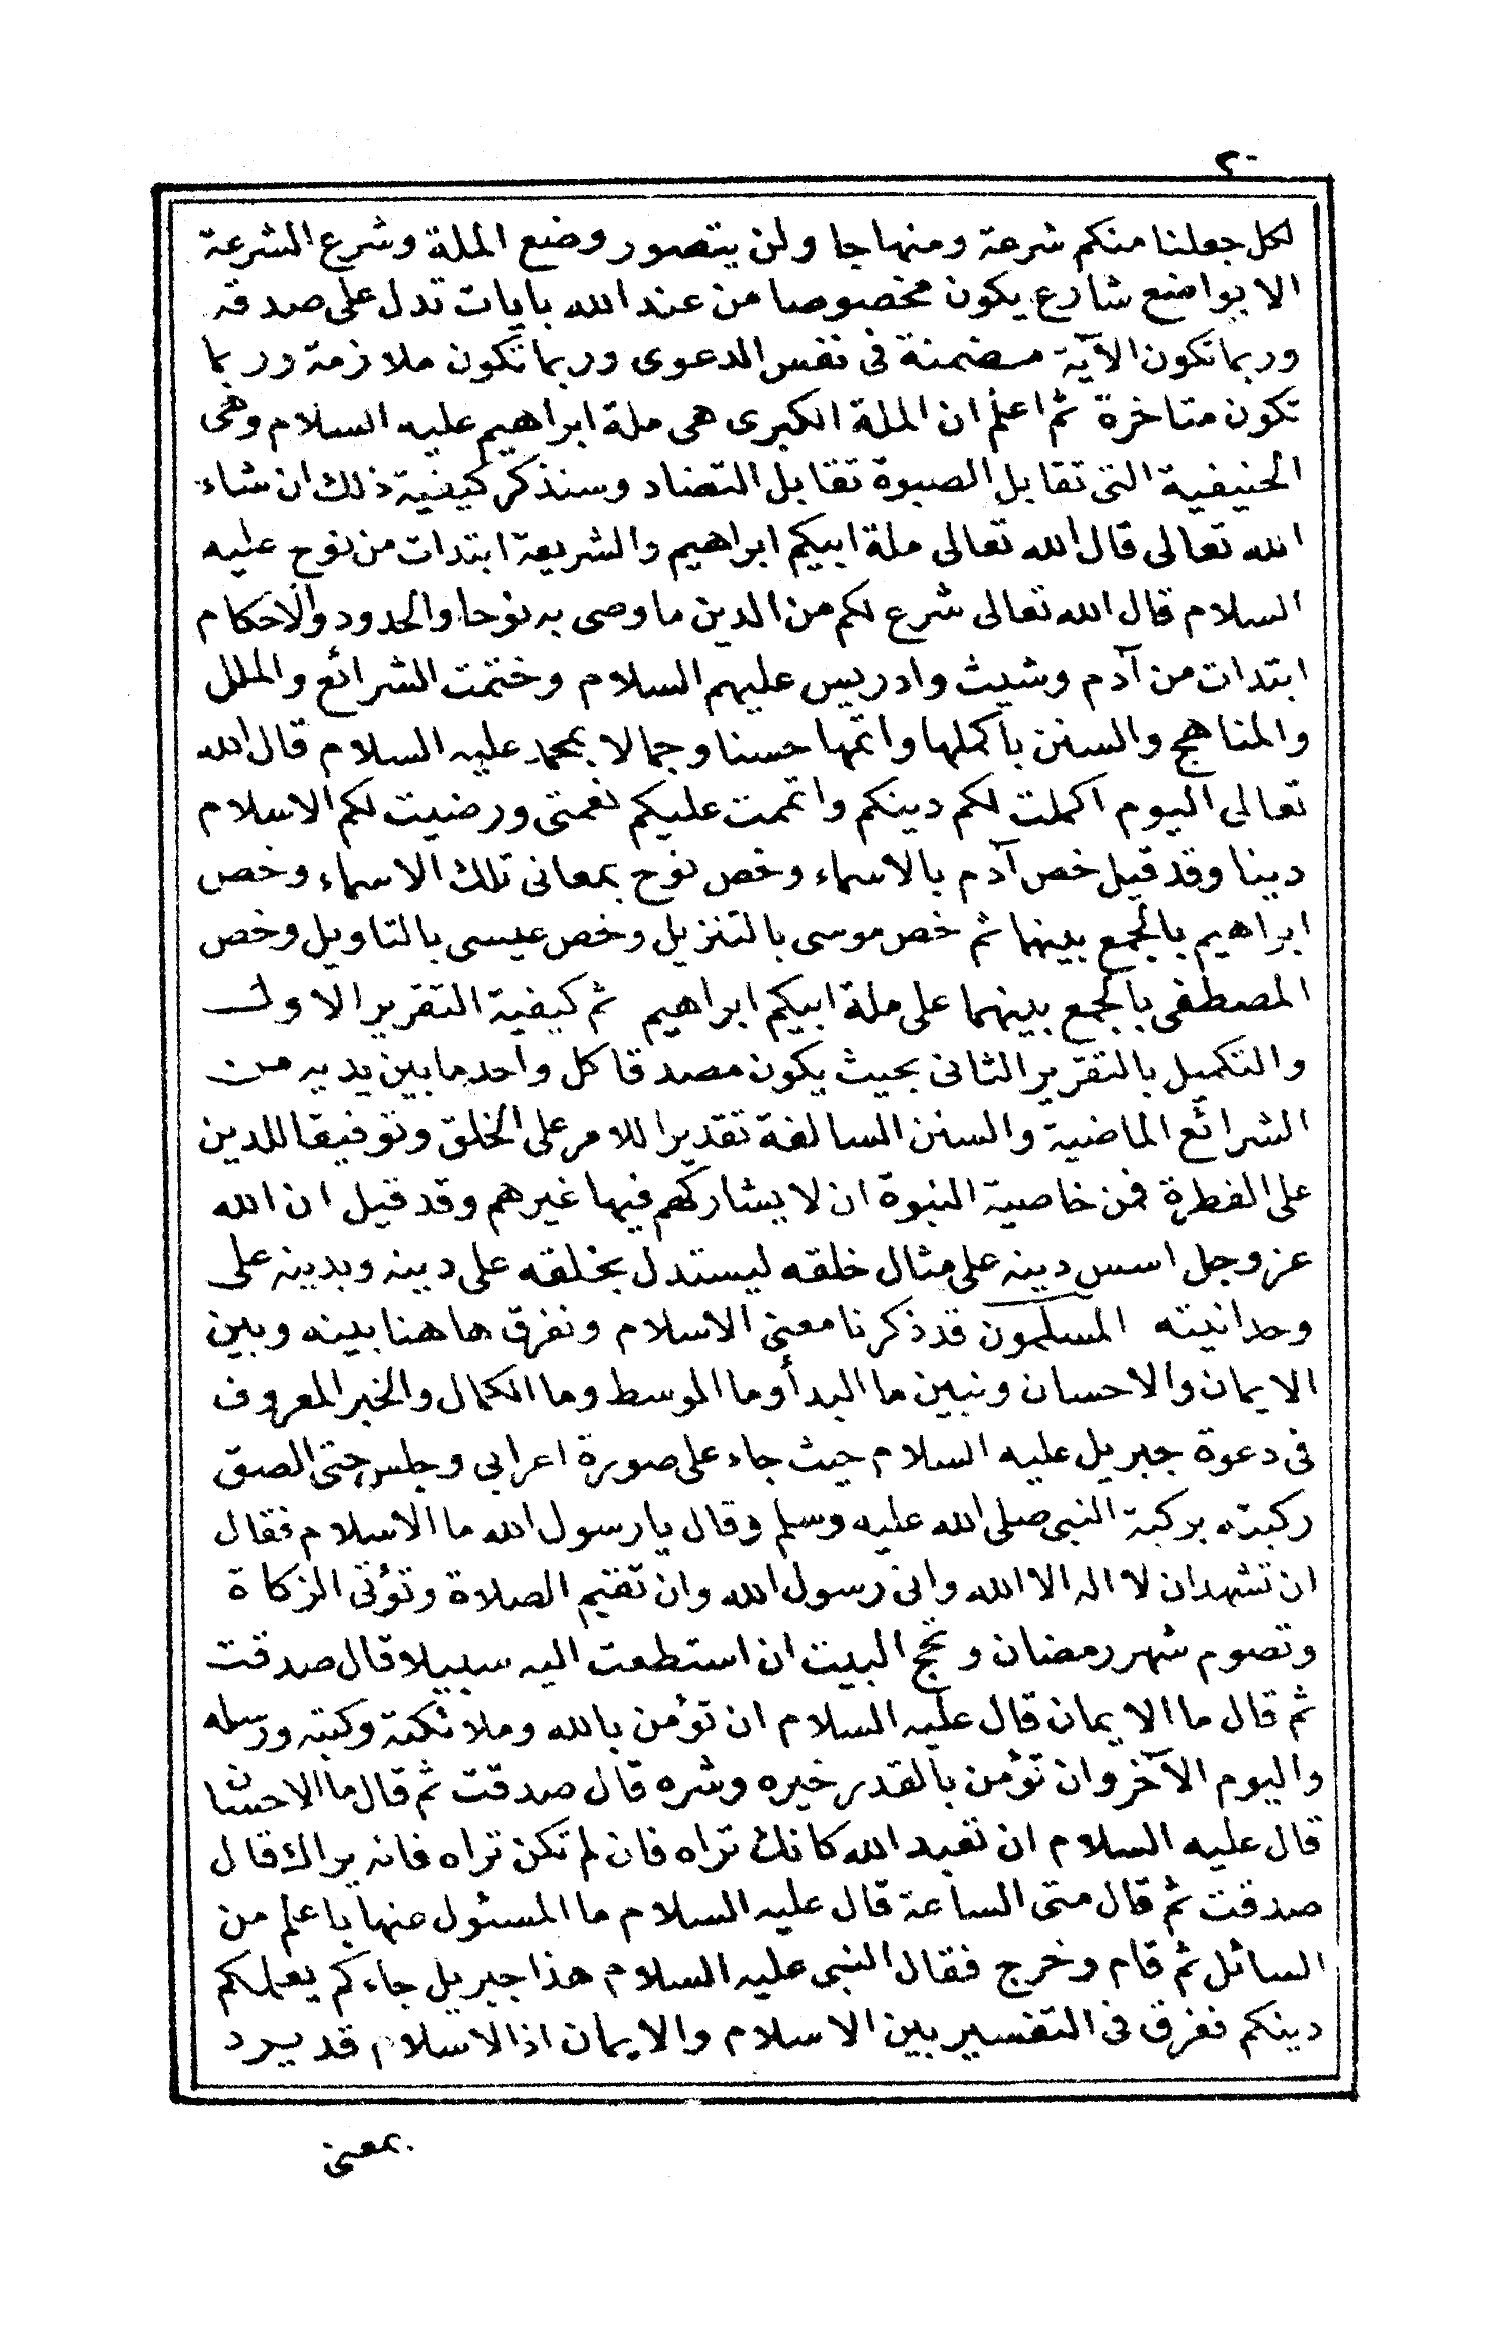 ٢٠
لكل جعلنا منكم شرعة ومنهاجا ولن يتصور وضع الملة وشرع الشرعة
الا بواضع شارع يكون مخصوصا من عند الله بايات تدل على صدقه
وربما تكون الآية مضمنة فى نفس الدعوى وربما تكون ملازمة وربما
تكون متاخرة ثم اعلم ان الملة الكبرى هى ملة ابراهيم عليه السلام وهى
الحنيفية التى تقابل الصبوة تقابل التضاد وسنذكر كيفية ذلك ان شاء
الله تعالى قال الله تعالى ملة ابيكم ابراهيم والشريعة ابتدات من نوح عليه
السلام قال الله تعالى شرع لكم من الدين ما وصى به نوحا والحدود والاحكام
ابتدات من آدم وشيث وادريس عليهم السلام وختمت الشرائع والملل
والمناهج والسنن باكملها واتمها حسنا وجمالا بمحمد عليه السلام قال الله
تعالى اليوم اكملت لكم دينكم واتممت عليكم نعمتى ورضيت لكم الاسلام
دينا وقد قيل خص آدم بالاسماء وخص نوح بمعانى تلك الاسماء وخص
ابراهيم بالجمع بينهما ثم خص موسى بالتنزيل وخص عيسى بالتاويل وخص
المصطفى بالجمع بينهما على ملة ابيكم ابراهيم ثم كيفية التقرير الاول
والتكميل بالتقرير الثانى بحيث يكون مصدقا كل واحد ما بين يديه من
الشرائع الماضية والسنن السالفة تقديرا للامر على الخلق وتوفيقا للدين
على الفطرة فمن خاصية النبوة ان لا يشاركهم فيها غيرهم وقد قيل ان الله
عز وجل اسس دينه على مثال خلقه ليستدل بخلقه على دينه وبدينه على
وحدانيته المسلمون قد ذكرنا معنى الاسلام ونفرق هاهنا بينه وبين
الايمان والاحسان ونبين ما البدأ وما الموسط وما الكمال والخبر المعروف
فى دعوة جبريل عليه السلام حيث جاء على صورة اعرابي وجلس حتى الصق
ركبته بركبة النبى صلى الله عليه وسلم وقال يا رسول الله ما الاسلام فقال
ان تشهد ان لا اله الا الله وانى رسول الله وان تقيم الصلاة وتؤتى الزكاة
وتصوم شهر رمضان وتحج البيت ان استطعت اليه سبيلا قال صدقت
ثم قال ما الايمان قال عليه السلام ان تؤمن بالله وملائكته وكتبه ورسله
واليوم الآخر وان تؤمن بالقدر خيره وشره قال صدقت ثم قال ما الاحسان
قال عليه السلام ان تعبد الله كانك تراه فان لم تكن تراه فانه يراك قال
صدقت ثم قال متى الساعة قال عليه السلام ما المسئول عنها باعلم من
السائل ثم قام وخرج فقال النبى عليه السلام هذا جبريل جاءكم يعلمكم
دينكم ففرق فى التفسير بين الاسلام والايمان اذ الاسلام قد يرد
بمعنى